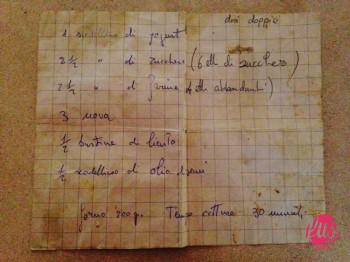 dosi doppie
1 scodellino di yogurt
2 ½ " di zucchero (6 etti di zucchero)
2 ½ " di farina (6 etti abbondanti)
3 uova
½ bustina di lievito
½ scodellino di olio semi
forno 200 gr. Tempo cottura 30 minuti